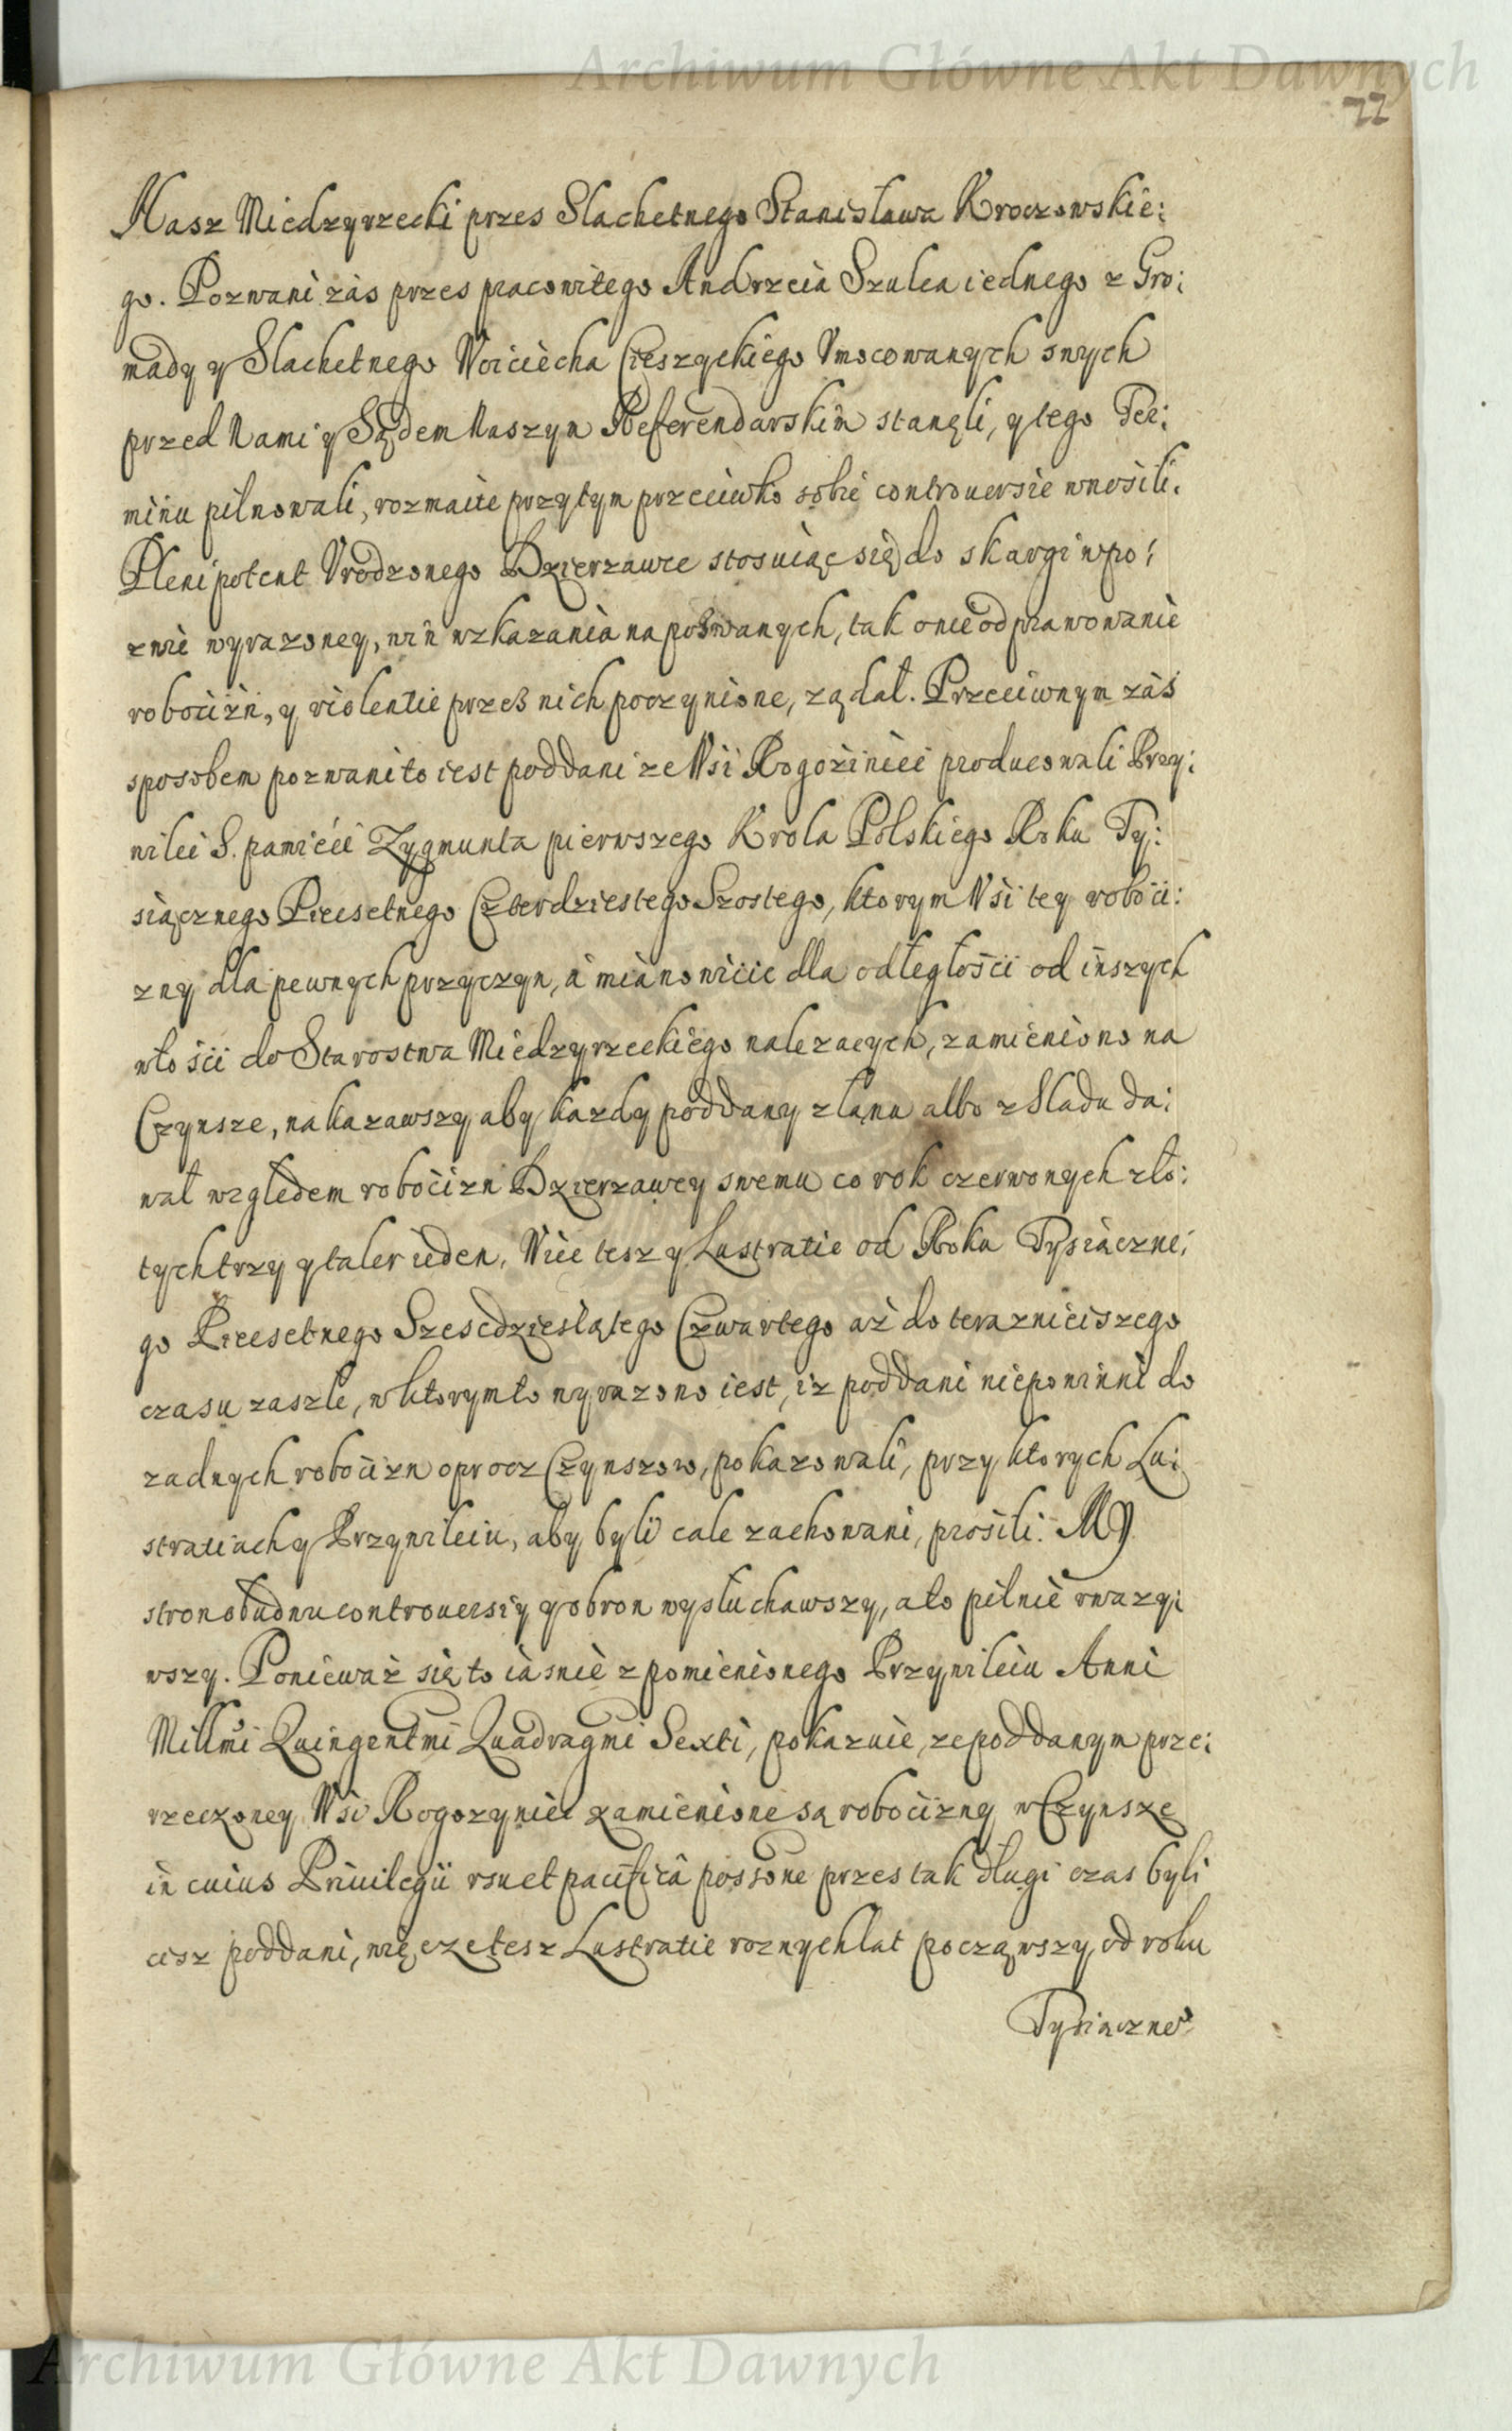 Archiwum Główne Akt Dawnych
22
Nasz Miedzyrzecki przes Slachetnego Stanisława Kroczowskie:
go. Pozwani zás przes pracowitego Andrzeia Szulca iednego z Gro:
mady y Slachetnego Woiciecha Cieszyckiego Vmocowanych swych
przed Nami y Sądem Naszym Referendarskim stanęli, y tego Ter:
minu pilnowali, rozmaite przytym przeciwko sobie controuersie wnosili.
Plenipotent Vrodzonego Dzierzawce stosuiąc się do skargi w po:
zwie wyrazoney, win wzkazania na pozwanych, tak o nieodprawowanie
robocizn, y violentie przeß nich poczynione, ządał. Przeciwnym záś
sposobem pozwani to iest poddani ze Wsi Rogoziniec producowali Przy:
wilei S. pamięci Zygmunta pierwszego Krola Polskiego Roku Ty:
siącznego Piecsetnego Czterdziestego Szostego, ktorym Wsi tey roboci:
zny dla pewnych przyczyn, a mianowicie dla odległości od inszych
włości do Starostwa Miedzyrzeckiego nalezacych, zamieniono na
Czynsze, nakazawszy aby kazdy poddany z łanu albo z Sladu da:
wał względem robocizn Dzierzawcy swemu co rok czerwonych zło:
tych trzy y taler ieden, Wiec tesz y Lustratie od Roku Tysiączne:
go Piecsetnego Szescdziesiątego Czwartego aż do teraznieiszego
czasu zaszłe, w ktorym to wyrazono iest, iz poddani niepowinni do
zadnych robocizn oprocz Czynszow, pokazowali, przy ktorych Lu:
stratiach y Przywileiu, aby byli cale zachowani, prosili. My
stron obudwu controuersiy y obron wysłuchawszy, a to pilnie vwazy:
wszy. Ponieważ się to iasnie z pomienionego Przywileiu Anni
Millmi Quingentmi Quadragmi Sexti, pokazuie, ze poddanym prze:
rzeczoney Wsi Rogozyniec zamienione są robocizny w Czynsze
in cuius Priuilegii vsu et pacifica possone przes tak długi czas byli
cisz poddani, więc ze tesz Lustratie roznych lat począwszy od roku
Tysiączne°
Archiwum Główne Akt Dawnych